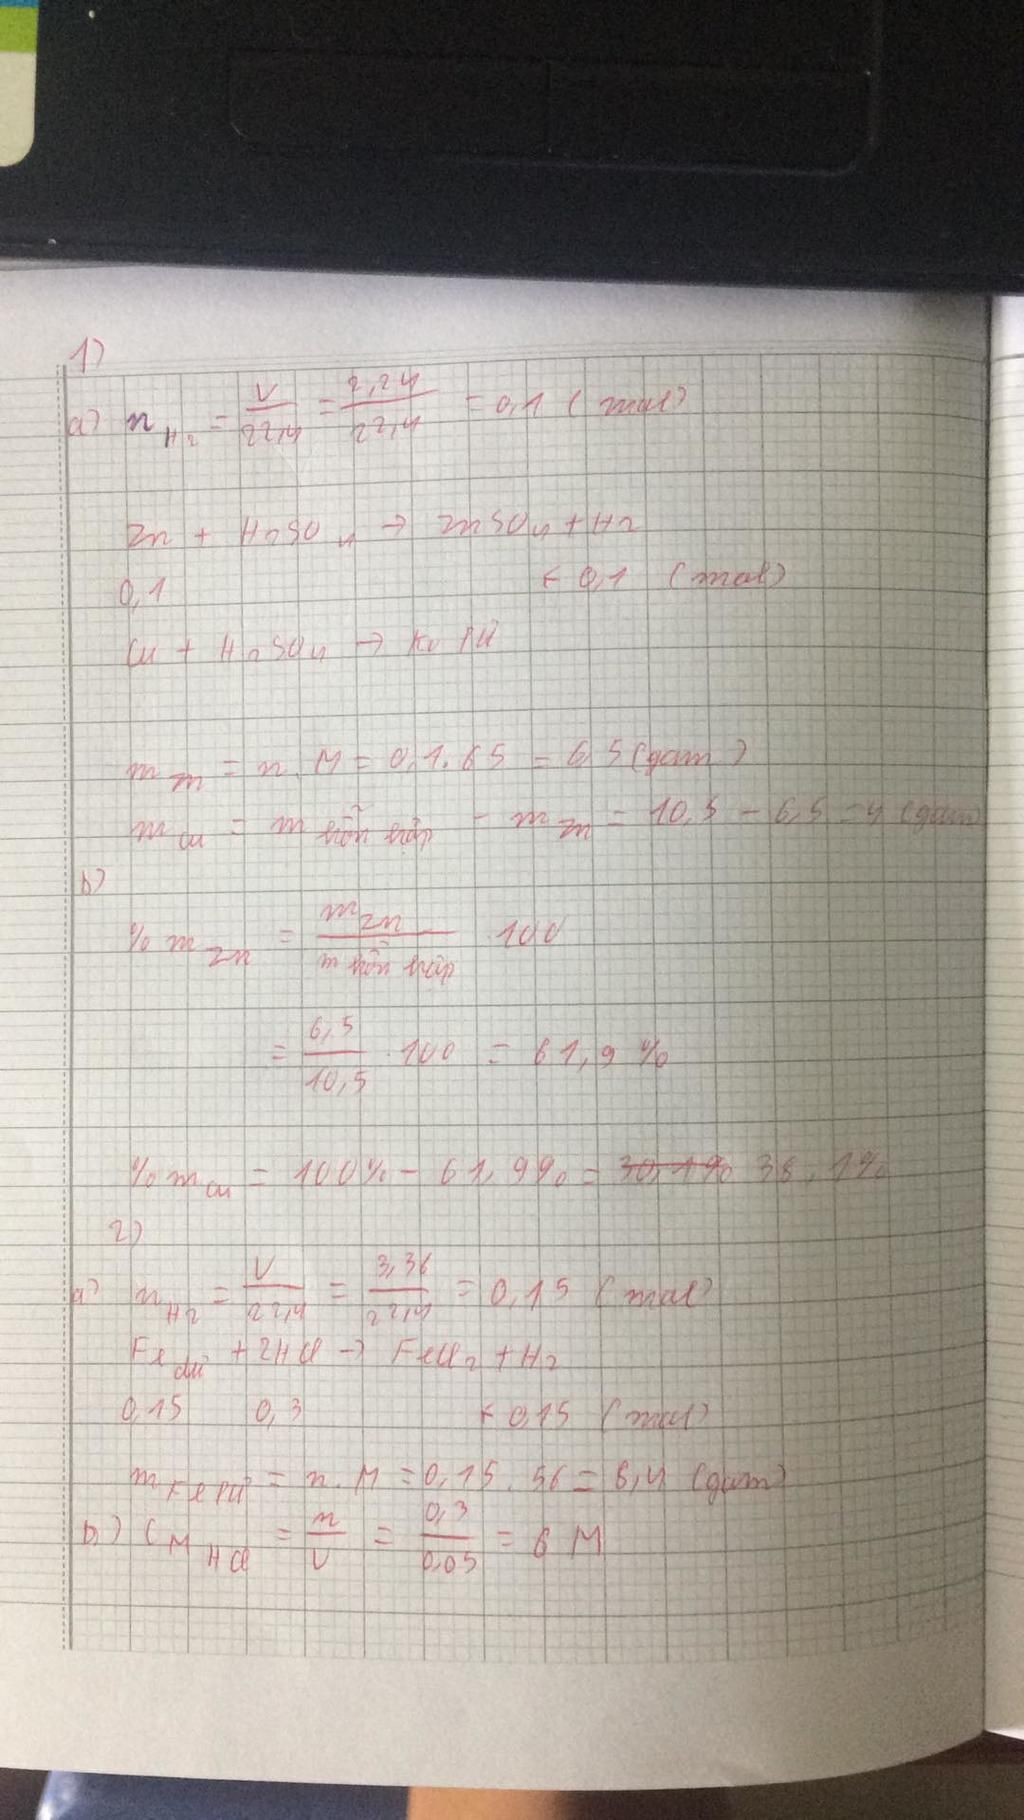 1)
a) n H2 = V/22,4 = 2,24/22,4 = 0,1 (mol)
Zn + H2SO4 → ZnSO4 + H2
0,1 ← 0,1 (mol)
Cu + H2SO4 → Ko PƯ
m Zn = n. M = 0,1.65 = 6,5 (gam)
m Cu = m hỗn hợp - m Zn = 10,5 - 6,5 = 4 (gam)
b)
% m Zn = m Zn/m hỗn hợp . 100
= 6,5/10,5 . 100 = 61,9 %
% m Cu = 100% - 61,9% = 30,1% 38,1%
2)
a) n H2 = V/22,4 = 3,36/22,4 = 0,15 (mol)
Fe dư + 2HCl → FeCl2 + H2
0,15 0,3 ← 0,15 (mol)
m Fe PƯ = n. M = 0,15. 56 = 8,4 (gam)
b.) C M HCl = n/V = 0,3/0,05 = 6 M